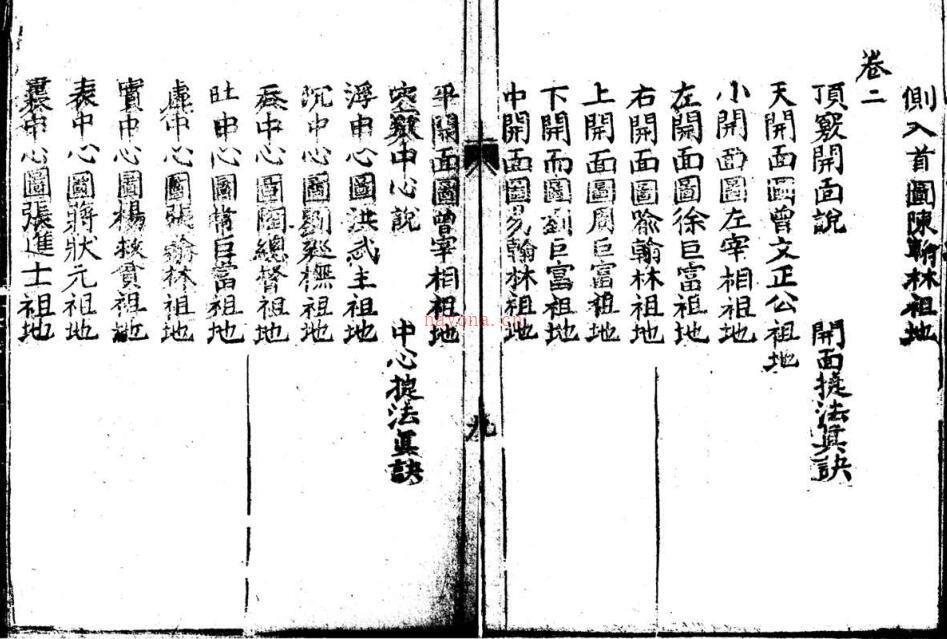 側入首圖陳翰林祖地
卷二
頂竅開面說 開面揵法真訣
天開面圖曾文正公祖地
小開面圖左宰相祖地
左開面圖徐巨富祖地
右開面圖喻翰林祖地
上開面圖周巨富祖地
下開面圖劉巨富祖地
中開面圖易翰林祖地
九
平開面圖曾宰相祖地
竅中心說 中心揵法真訣
浮中心圖洪武主祖地
沉中心圖劉巡撫祖地
吞中心圖陶總督祖地
吐中心圖常巨富祖地
虛中心圖張翰林祖地
實中心圖楊救貧祖地
表中心圖蔣狀元祖地
裏中心圖張進士祖地
nayona.cn